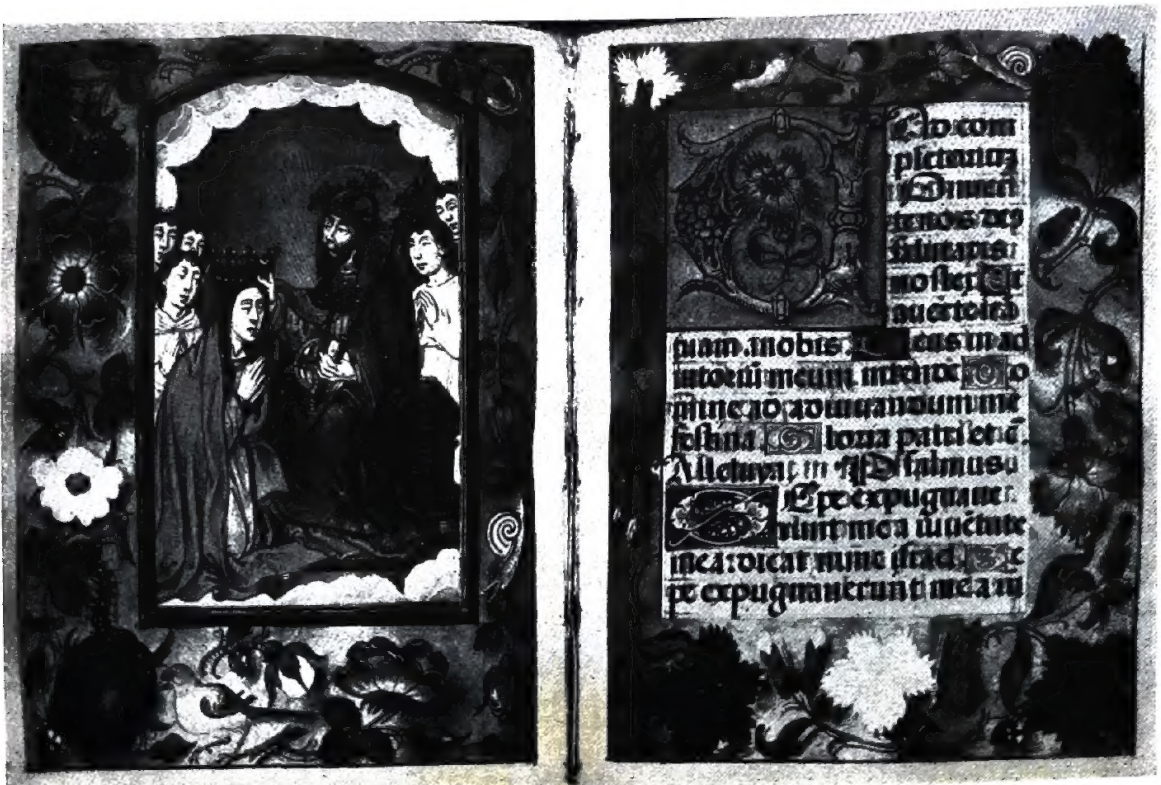 Ad com
pletorium
Conuer
te nos deꝰ
salutaris
noster Et
auerte irā
tuam. a nobis. Deus in ad
iutoriū meum intende Do
mine ad adiuuandum me
festina. Gloria patri et c̄.
Alleluya. Psalmus
Sepe expugnauer
unt me a iuuētute
mea: dicat nunc israel. Se
pe expugnauerunt me a iu